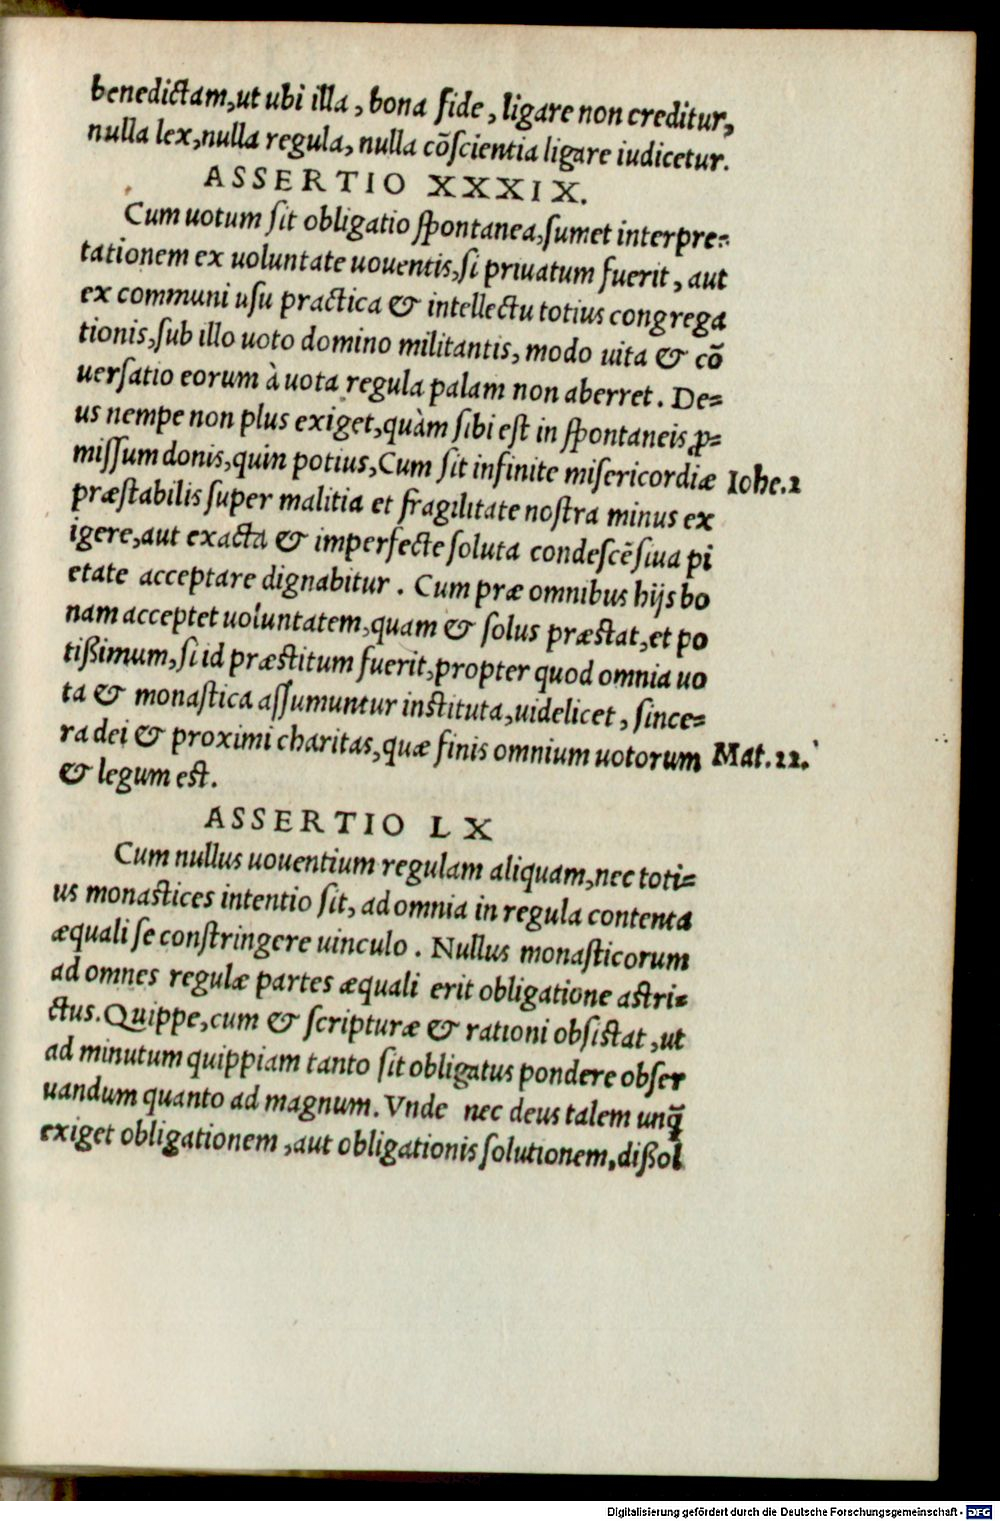 benedictam,ut ubi illa , bona fide , ligare non creditur,
nulla lex,nulla regula, nulla cõſcientia ligare iudicetur.
ASSERTIO XXXIX.
Cum uotum ſit obligatio ſpontanea,ſumet interpre⸗
tationem ex uoluntate uouentis,ſi priuatum fuerit , aut
ex communi uſu practica & intellectu totius congrega
tionis,ſub illo uoto domino militantis, modo uita & cõ
uerſatio eorum à uota regula palam non aberret . De⸗
us nempe non plus exiget,quàm ſibi eſt in ſpontaneis ꝓ⸗
miſſum donis,quin potius,Cum ſit infinite miſericordiæ Iohe.2
præſtabilis ſuper malitia et fragilitate noſtra minus ex
igere,aut exacta & imperfecte ſoluta condeſcẽſiua pi
etate acceptare dignabitur . Cum præ omnibus hijs bo
nam acceptet uoluntatem,quam & ſolus præſtat,et po
tißimum,ſi id præſtitum fuerit,propter quod omnia uo
ta & monaſtica aſſumuntur inſtituta,uidelicet , ſince⸗
ra dei & proximi charitas,quæ finis omnium uotorum Mat.22.
& legum eſt.
ASSERTIO LX
Cum nullus uouentium regulam aliquam,nec toti⸗
us monaſtices intentio ſit, ad omnia in regula contenta
æquali ſe conſtringere uinculo . Nullus monaſticorum
ad omnes regulæ partes æquali erit obligatione aſtri⸗
ctus.Quippe,cum & ſcripturæ & rationi obſiſtat ,ut
ad minutum quippiam tanto ſit obligatus pondere obſer
uandum quanto ad magnum. Vnde nec deus talem unq̃
exiget obligationem ,aut obligationis ſolutionem,dißol
Digitalisierung gefördert durch die Deutsche Forschungsgemeinschaft - DFG